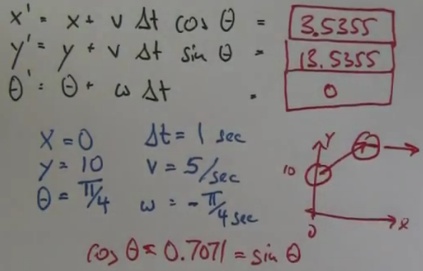 x' = x + v Δt cos θ = 3.5355
y' = y + v Δt sin θ = 13.5355
θ' = θ + ω Δt = 0
x = 0 Δt = 1 sec
y = 10 v = 5/sec
θ = π/4 ω = -π/4 sec
y
10
0
x
cos θ = 0.7071 = sin θ